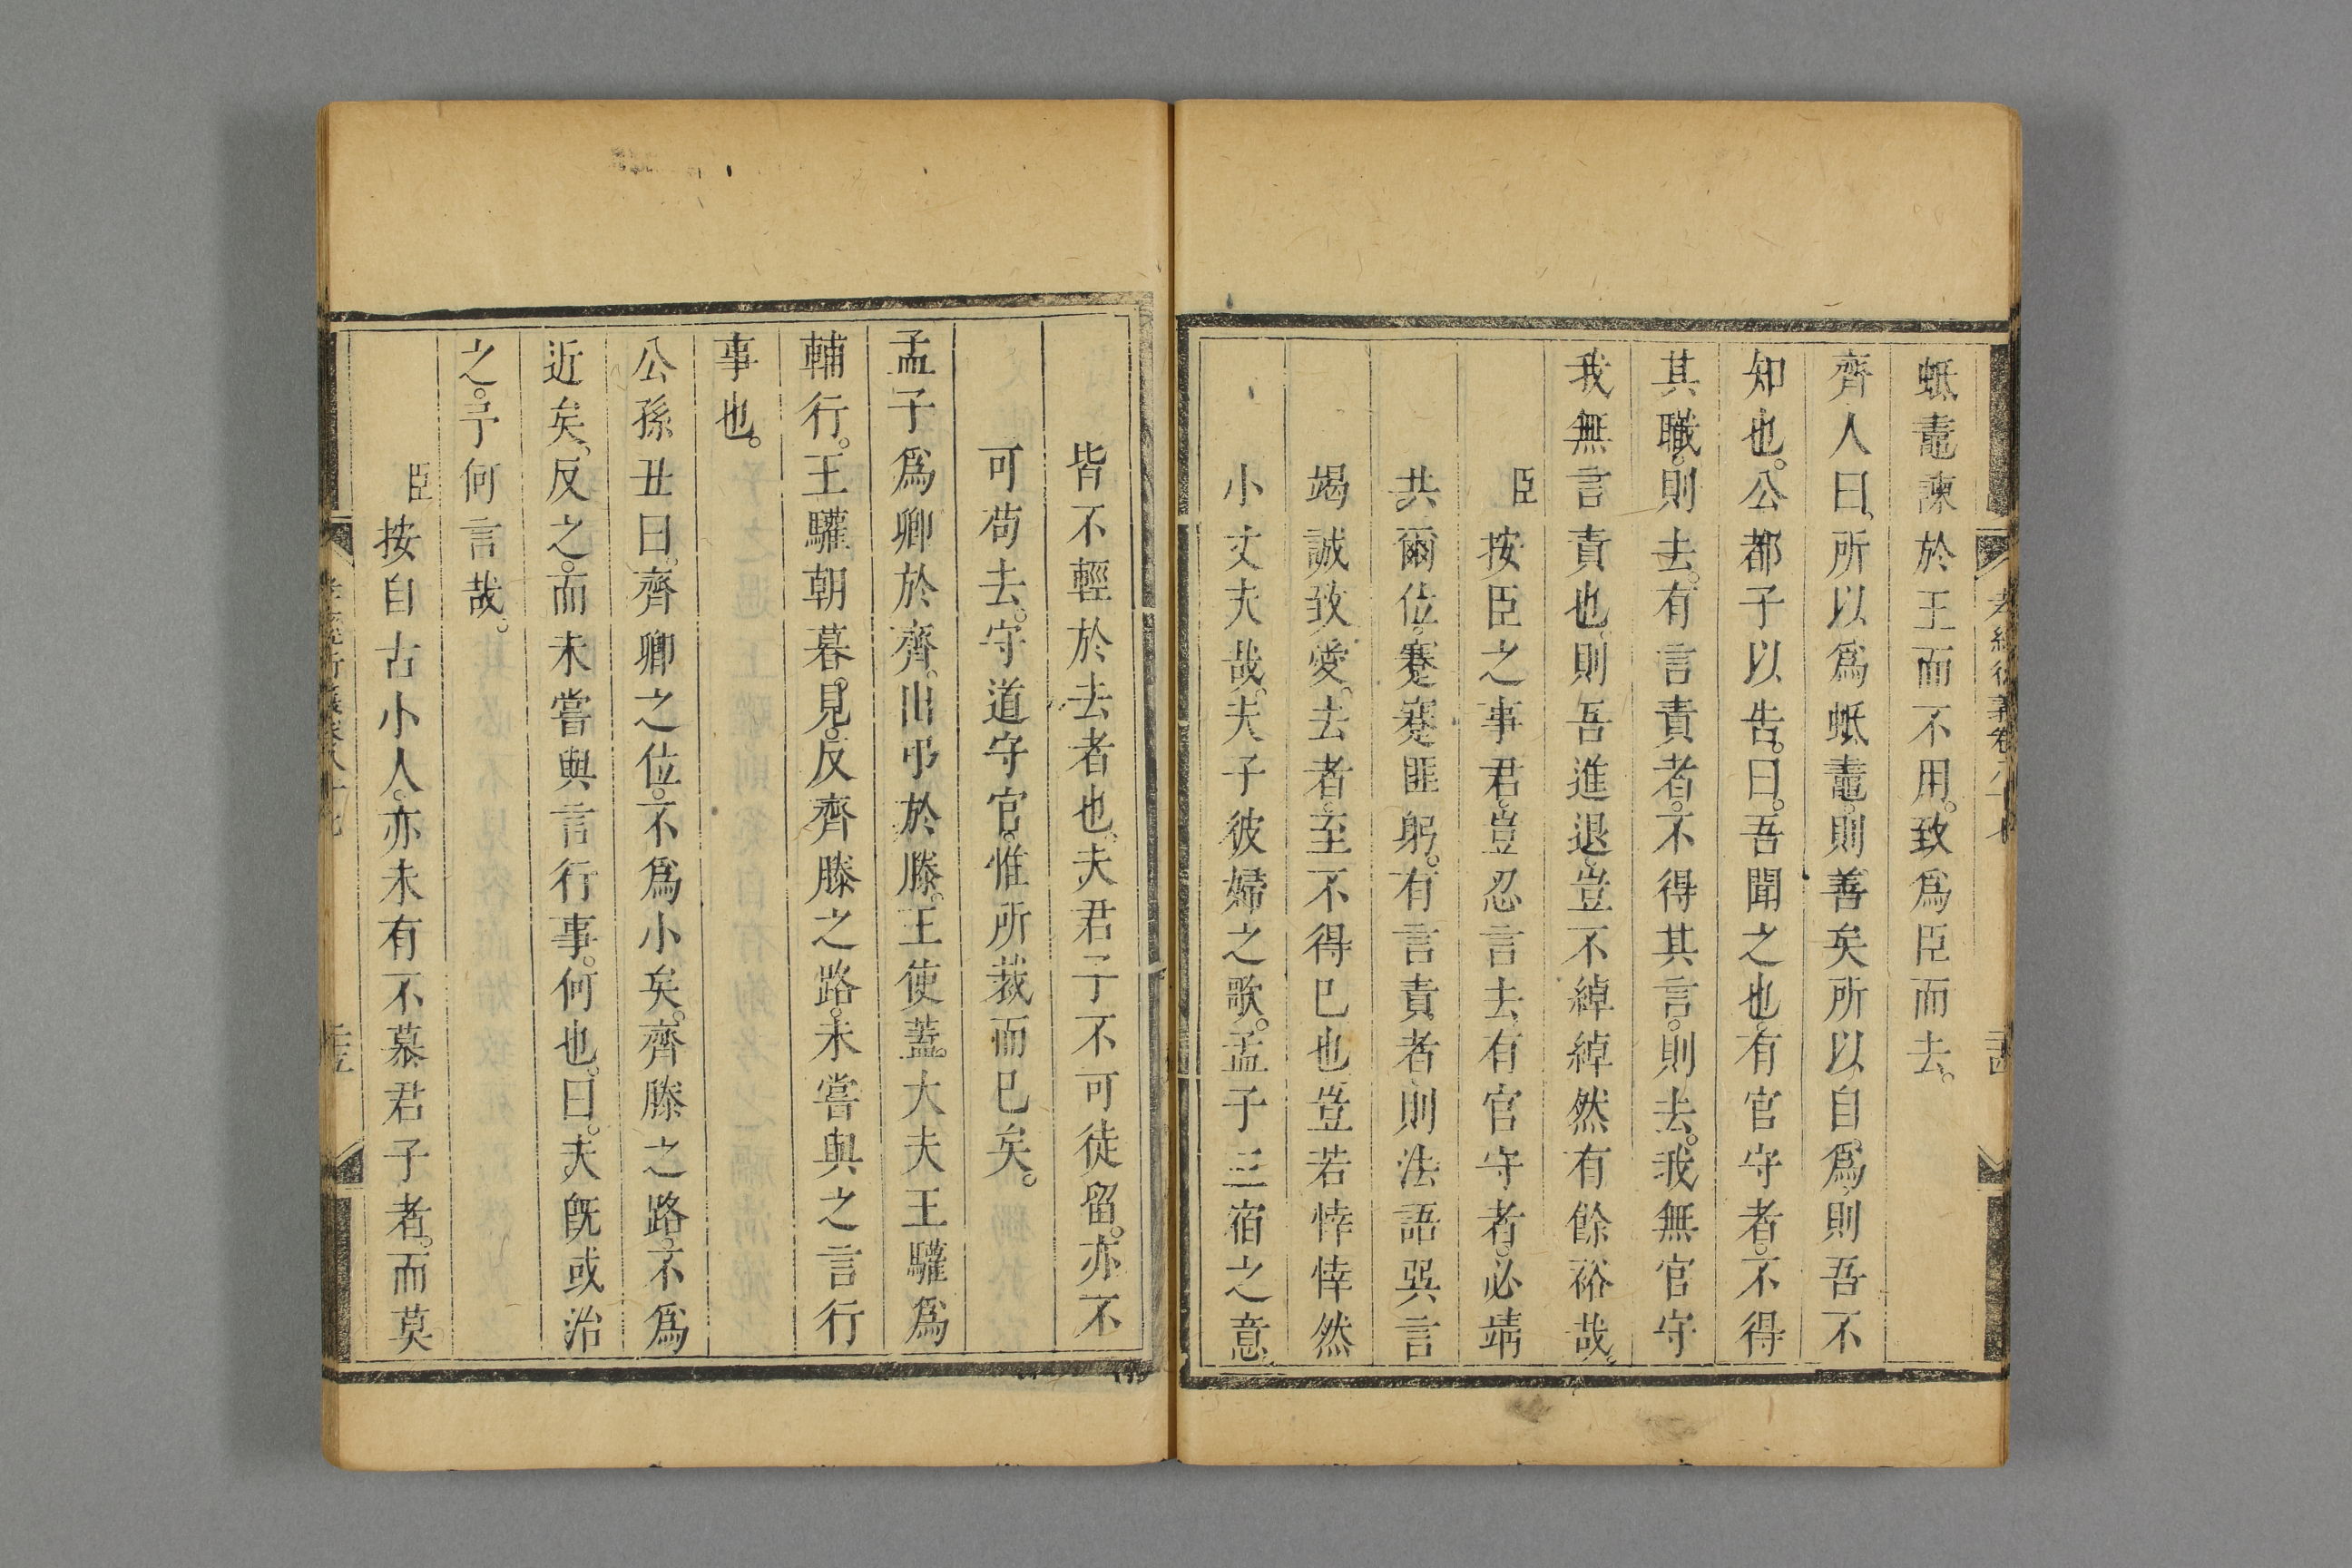 蚳鼃諫於王而不用。致爲臣而去。
齊人曰、所以爲蚳鼃。則善矣所以自爲、則吾不
知也。公都子以告。曰。吾聞之也。有官守者。不得
其職。則去。有言責者。不得其言。則去。我無官守
我無言責也。則吾進退。豈不綽綽然有餘裕哉。
臣按臣之事君。豈忍言去、有官守者。必靖
共爾位。蹇蹇匪躬。有言責者則法語巽言
竭誠致愛。去者。至不得已也豈若悻悻然
小丈夫哉。夫子彼婦之歌。孟子三宿之意、
皆不輕於去者也、夫君子不可徒留。亦不
可苟去。守道守官。惟所裁而已矣。
孟子爲卿於齊。出弔於滕。王使蓋。大夫王驩爲
輔行。王驩朝暮。見。反齊滕之路。未嘗與之言行
事也。
公孫丑曰。齊卿之位。不爲小矣。齊滕之路。不爲
近矣、反之。而未嘗與言行事。何也。曰。夫既或治
之。予何言哉。
臣按自古小人。亦未有不慕君子者。而莫